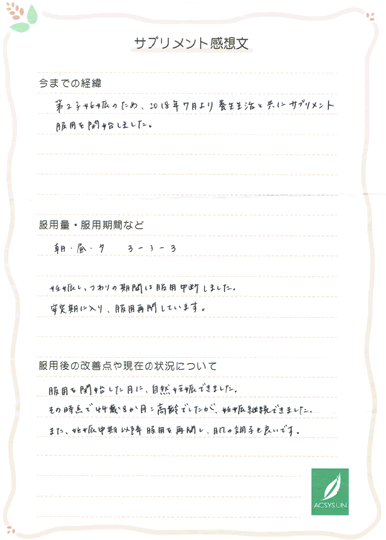 サプリメント感想文
今までの経緯
第2子妊娠のため、2018年7月より養生生活と共にサプリメント
服用を開始しました。
服用量・服用期間など
朝・昼・夕　3-3-3
妊娠し、つわりの期間は服用中断しました。
安定期に入り、服用再開しています。
服用後の改善点や現在の状況について
服用を開始した月に、自然妊娠できました。
その時点で44歳8か月と高齢でしたが、妊娠継続できました。
また、妊娠中期以降服用を再開し、肌の調子も良いです。
ACSYS LIN